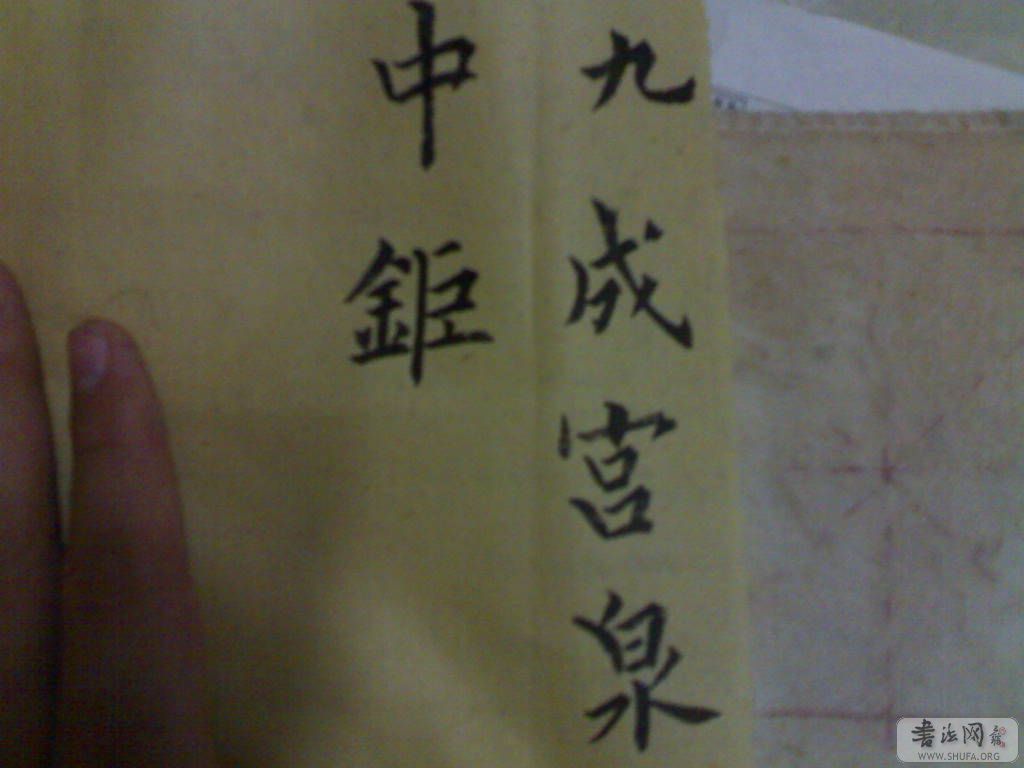 九成宫泉
中鉅
书法网
WWW.SHUFA.ORG